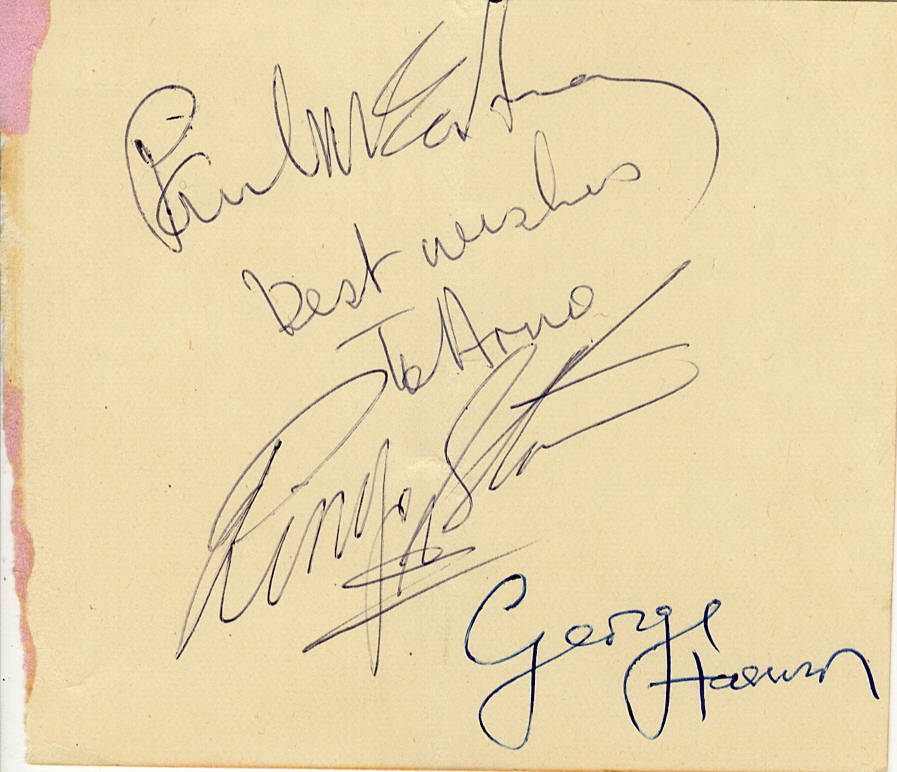 Paul McCartney
best wishes
To Anna
Ringo Starr
George
Harrison